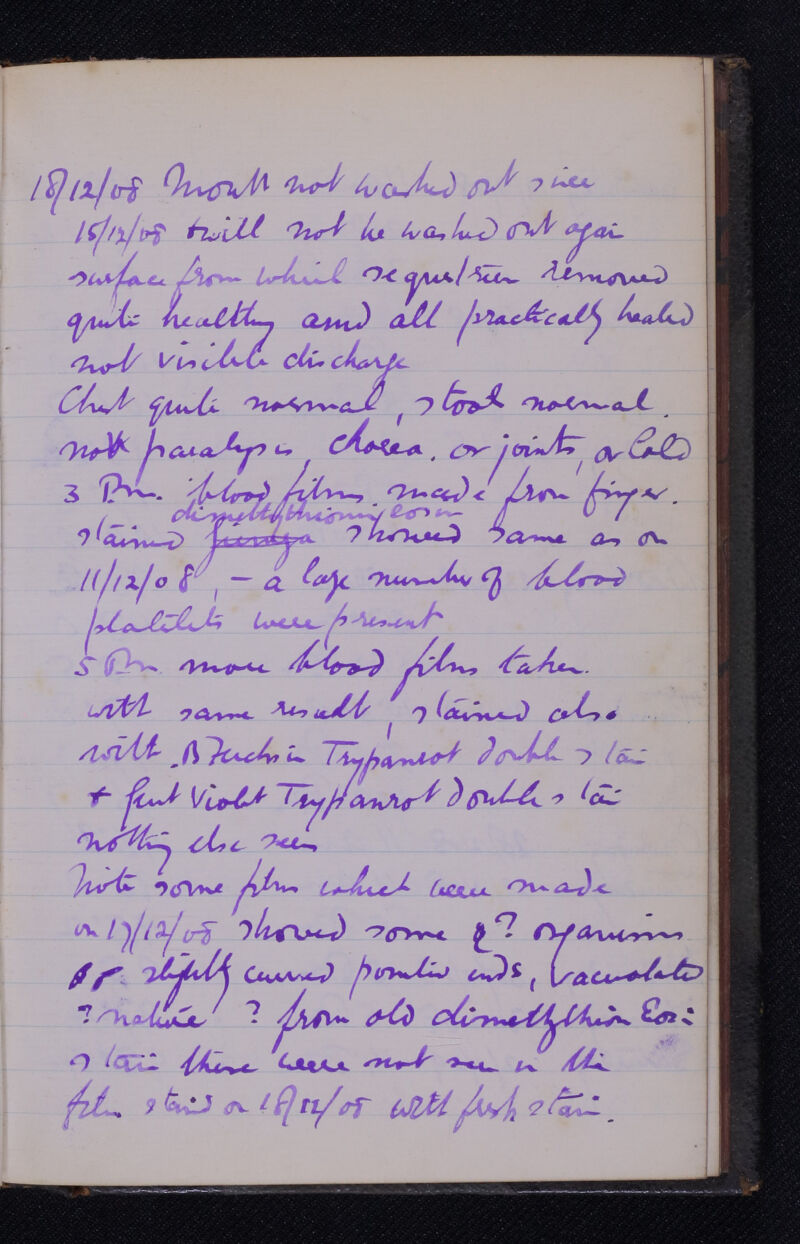 18/12/08 Mouth not washed out since
15/12/08 + will not be washed out again
surface from which sequestrum removed
quite healthy and all practically healed
not visible discharge
Chest quite normal, stools normal.
not paralysis, chorea. or joints, or Cold
3 P.m. blood films made from finger.
dimethylthionin eosin
stained showed same as on
11/12/08, – a large number of blood
platelets were present
5 P.m. more blood films taken.
with same result, stained also
with B Fuchsin Trypanrot double stain
+ Gent Violet Trypanrot double stain
nothing else seen
Note some films which were made
on 17/12/08 showed some ? organisms
slightly curved pointed ends, vacuolated
? nature ? from old dimethylthion Eosin
stain these were not seen in the
film stained on 18/12/08 with fresh stain.